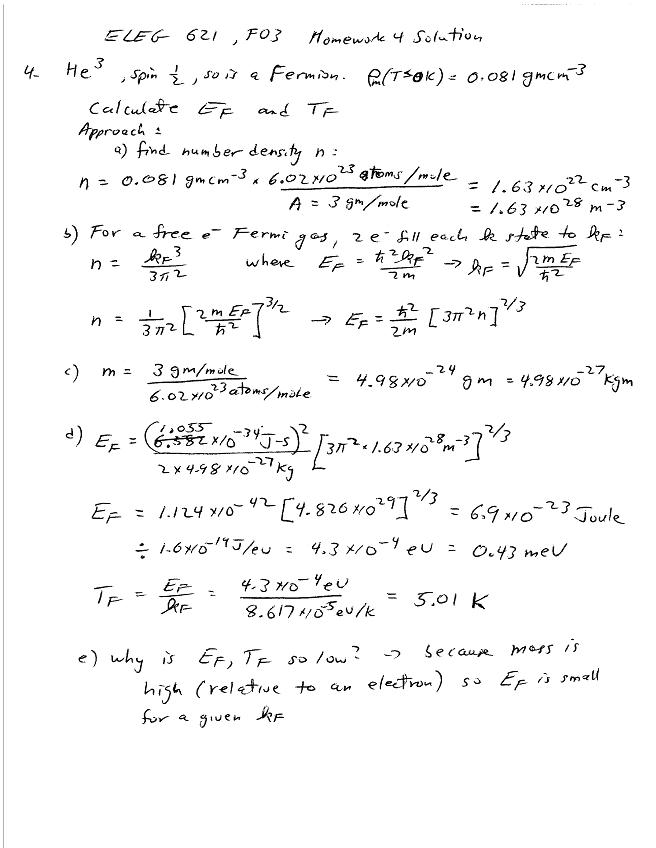 ELEG 621, F03 Homework 4 Solution
4- He³, spin ½, so is a Fermion. ρm(T≤0K) = 0.081 gm cm⁻³
Calculate EF and TF
Approach:
a) find number density n:
n = 0.081 gm cm⁻³ × 6.02×10²³ atoms/mole / A = 3 gm/mole = 1.63×10²² cm⁻³
= 1.63×10²⁸ m⁻³
b) For a free e⁻ Fermi gas, 2 e⁻ fill each k state to kF:
n = kF³ / 3π² where EF = ħ²kF² / 2m → kF = √(2m EF / ħ²)
n = 1/3π² [2m EF / ħ²]^3/2 → EF = ħ²/2m [3π²n]^2/3
c) m = 3 gm/mole / 6.02×10²³ atoms/mole = 4.98×10⁻²⁴ gm = 4.98×10⁻²⁷ Kgm
d) EF = (1.055×10⁻³⁴ J-s)² / 2×4.98×10⁻²⁷ Kg [3π²·1.63×10²⁸ m⁻³]^2/3
EF = 1.124×10⁻⁴² [4.826×10²⁹]^2/3 = 6.9×10⁻²³ Joule
÷ 1.6×10⁻¹⁹ J/eV = 4.3×10⁻⁴ eV = 0.43 meV
TF = EF / kF = 4.3×10⁻⁴ eV / 8.617×10⁻⁵ eV/K = 5.01 K
e) why is EF, TF so low? → because mass is
high (relative to an electron) so EF is small
for a given kF